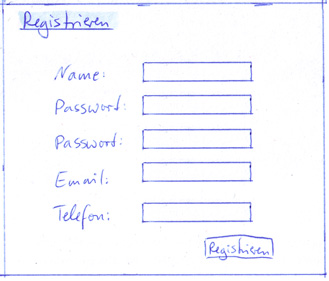 Registrieren
Name:
Password:
Password:
Email:
Telefon:
Registrieren